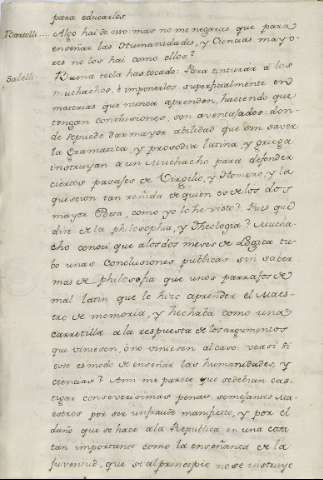 para educarles
Tcarselli... Algo hai de esto mas no me negaras que para
enseñar las Humanidades, y Ciencias mayo-
res no los hai como ellos?
Salelli.. Buena tecla has tocado: Para tinturar a los
muchachos, è imponerlos superficialmente en
materias que nunca aprenden, haciendo que
tengan conclusiones, son aventajados: don-
de se puede dar mayor abilidad que sin saver
la Gramatica, y prosodia latina, y griega
instruyan a un Muchacho para defender
ciertos pasajes de Virgilio, y Homero, y la
question tan reñida de quien es de los dos
mayor Poeta, como yo lo he visto? Pues que
dire de la philosophia, y Theologia? Mucha-
cho conoci que a los dos meses de Logica tu-
bo unas conclusiones publicas sin saber
mas de philosofia que unos parrafos de
mal latin que le hizo aprender el Maes-
tro de memoria, y hechaba como una
carretilla a la respuesta de los argumentos
que viniesen, ò no viniesen al caso versi si
este es modo de enseñar las humanidades, y
ciencias? Ami me parece que se debian cas-
tigar con severisimas penas semejantes Ma-
estros por ser un fraude manifiesto, y por el
daño que se hace a la Republica en una cosa
tan importante como la enseñanza de la
Juventud, que si al principio no se instruye